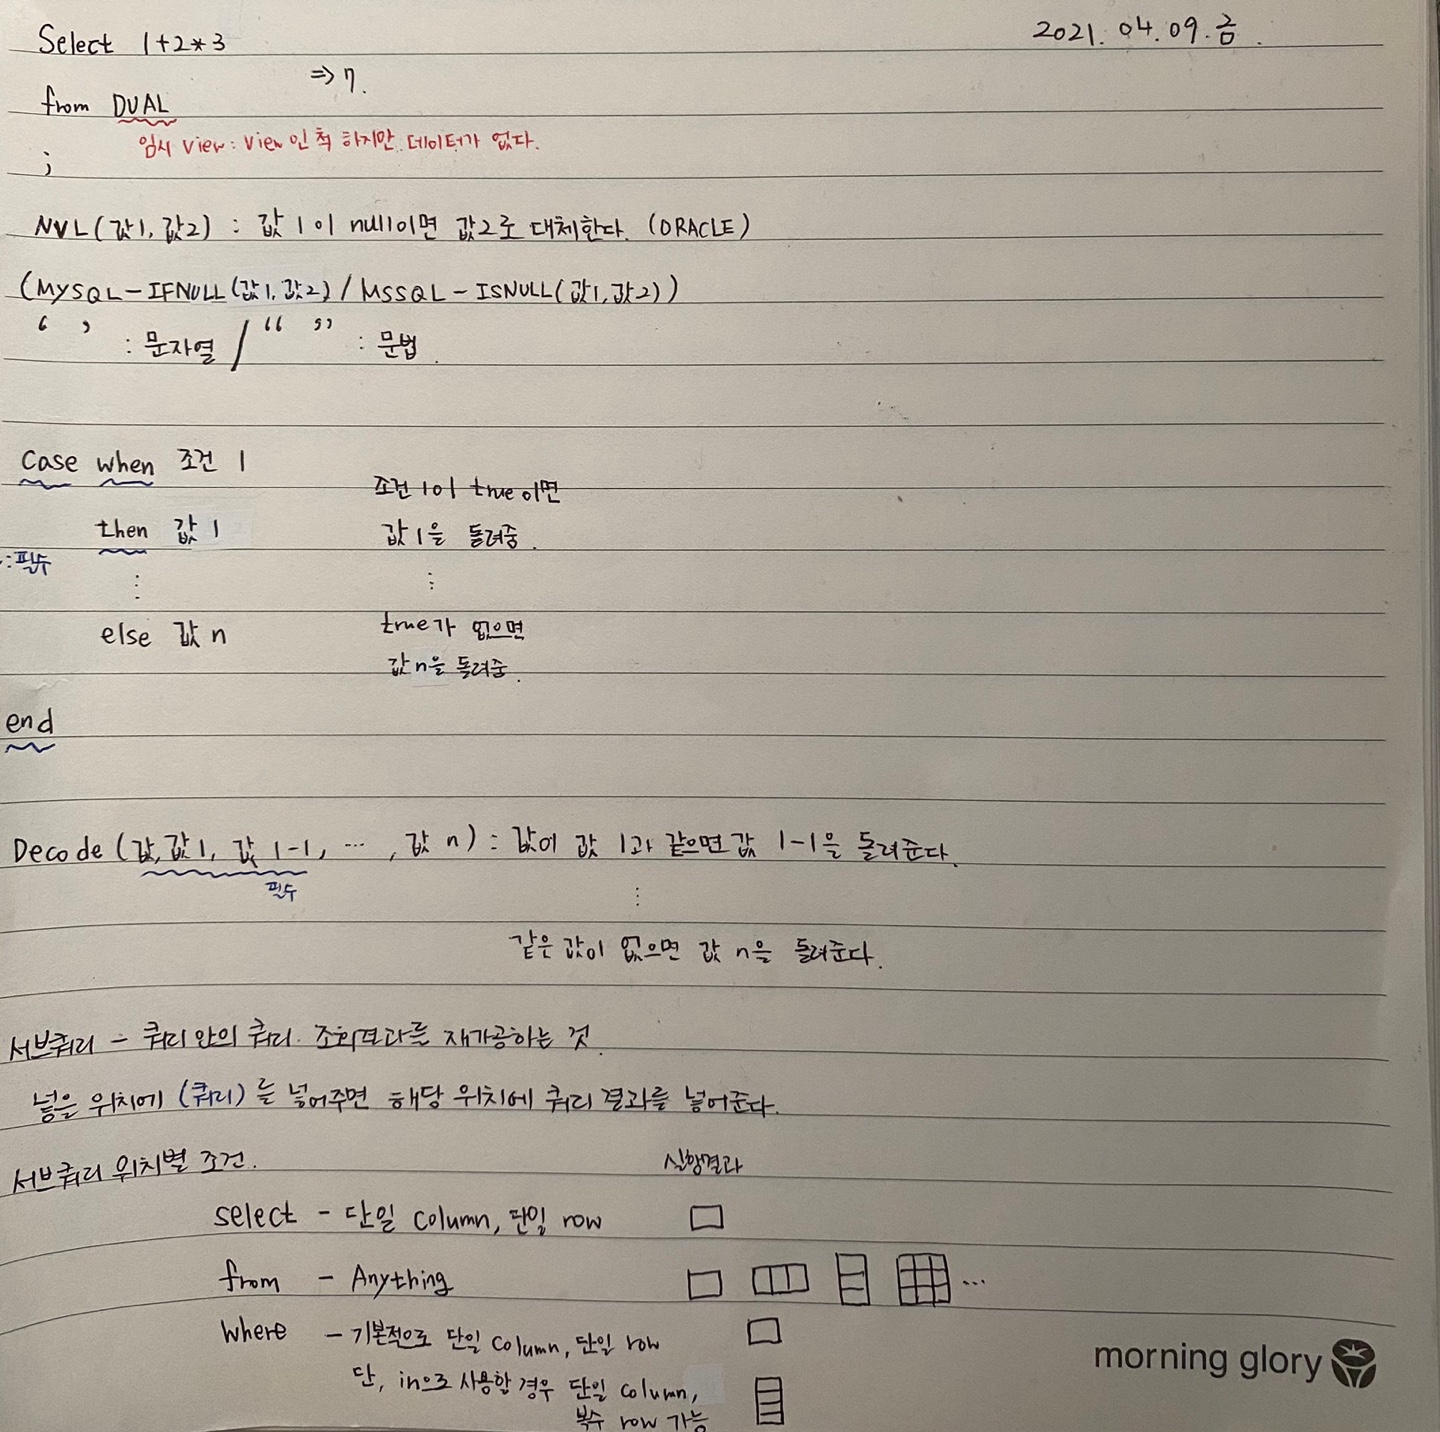 2021. 04. 09. 금.
Select 1+2*3
=> 7.
from DUAL
임시 view : view인 척 하지만 데이터가 없다.
;
NVL(값1, 값2) : 값1이 null이면 값2로 대체한다. (ORACLE)
(MYSQL-IFNULL(값1, 값2) / MSSQL-ISNULL(값1, 값2))
‘ ’ : 문자열 / “ ” : 문법.
case when 조건 1 조건 1이 true이면
then 값 1 값 1을 돌려줌.
~ : 필수
⋮ ⋮
else 값 n true가 없으면
값 n을 돌려줌.
end
Decode (값, 값1, 값 1-1, ⋯ , 값 n) : 값이 값 1과 같으면 값 1-1을 돌려준다.
필수 ⋮
같은 값이 없으면 값 n을 돌려준다.
서브쿼리 - 쿼리 안의 쿼리. 조회결과를 재가공하는 것.
넣을 위치에 (쿼리)를 넣어주면 해당 위치에 쿼리 결과를 넣어준다.
서브쿼리 위치별 조건. 실행결과
select - 단일 column, 단일 row
from - Anything ...
where - 기본적으로 단일 column, 단일 row
단, in으로 사용할 경우 단일 column,
복수 row 가능
morning glory